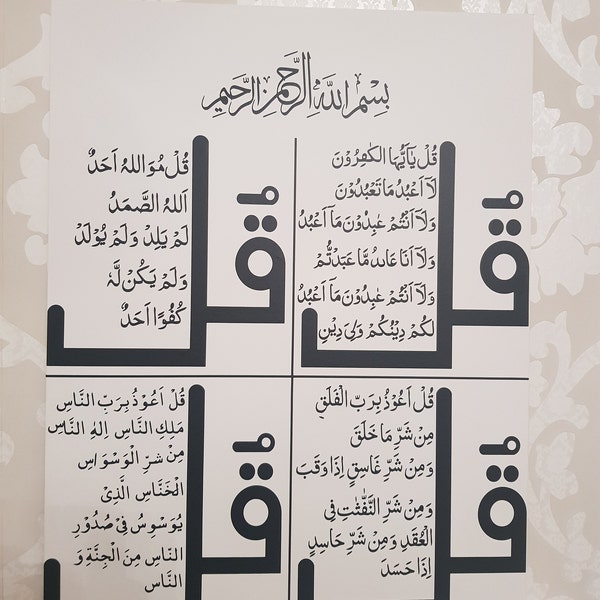 بِسْمِ اللهِ الرَّحْمٰنِ الرَّحِيْمِ
قُلْ يٰٓاَيُّهَا الْكٰفِرُوْنَ
لَآ اَعْبُدُ مَا تَعْبُدُوْنَ
وَلَآ اَنْتُمْ عٰبِدُوْنَ مَآ اَعْبُدُ
وَلَآ اَنَا عَابِدٌ مَّا عَبَدْتُّمْ
وَلَآ اَنْتُمْ عٰبِدُوْنَ مَآ اَعْبُدُ
لَكُمْ دِيْنُكُمْ وَلِيَ دِيْنِ
قُلْ
قُلْ هُوَ اللهُ اَحَدٌ
اَللهُ الصَّمَدُ
لَمْ يَلِدْ وَلَمْ يُوْلَدْ
وَلَمْ يَكُنْ لَّهٗ
كُفُوًا اَحَدٌ
قُلْ
قُلْ اَعُوْذُ بِرَبِّ الْفَلَقِ
مِنْ شَرِّ مَا خَلَقَ
وَمِنْ شَرِّ غَاسِقٍ اِذَا وَقَبَ
وَمِنْ شَرِّ النَّفّٰثٰتِ فِى
الْعُقَدِ وَمِنْ شَرِّ حَاسِدٍ
اِذَا حَسَدَ
قُلْ
قُلْ اَعُوْذُ بِرَبِّ النَّاسِ
مَلِكِ النَّاسِ اِلٰهِ النَّاسِ
مِنْ شَرِّ الْوَسْوَاسِ
الْخَنَّاسِ الَّذِىْ
يُوَسْوِسُ فِىْ صُدُوْرِ
النَّاسِ مِنَ الْجِنَّةِ وَ
النَّاس
قُلْ